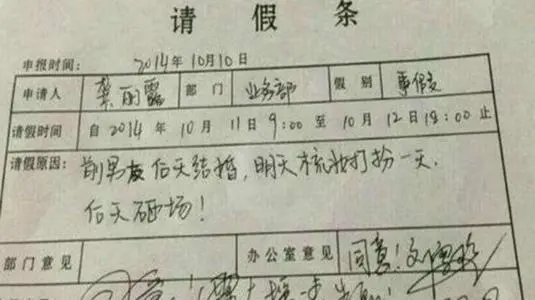 请假条
申报时间： 2014年10月10日
申请人 龚丽露 部门 业务部 假别 事假
请假时间 自2014年10月11日9:00至10月12日18:00止
请假原因： 前男友后天结婚，明天梳妆打扮一天.
后天砸场！
部门意见 办公室意见 同意！